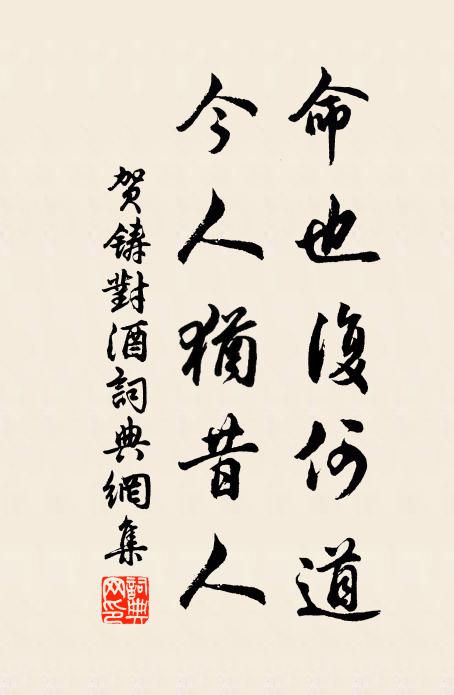 命也復何道
今人猶昔人
贺鑄對酒詞典網集
詞典
网印